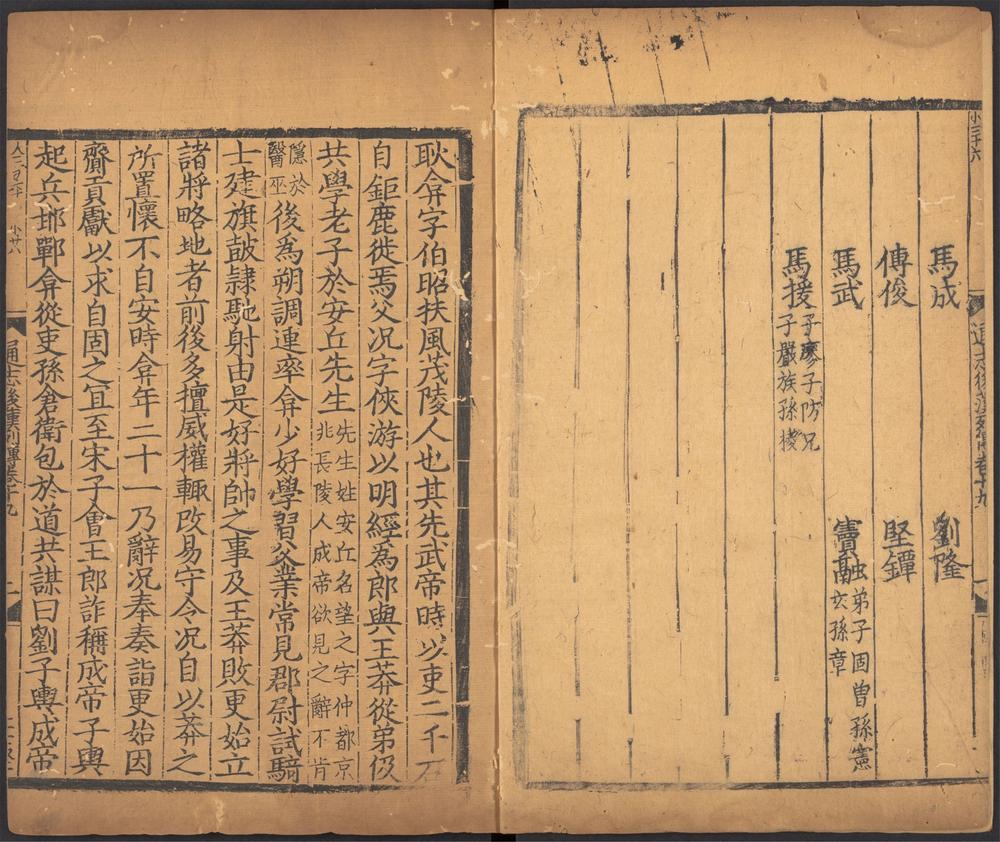 小三十六
馬成
劉隆
傅俊
堅鐔
馬武
竇融
弟子固曾孫憲
玄孫章
馬援
子廖子防兄
子嚴族孫棱
耿弇字伯昭扶風茂陵人也其先武帝時以吏二千石
自鉅鹿徙焉父况字俠游以明經為郎與王莽從弟伋
共學老子於安丘先生
先生姓安丘名望之字仲都京
兆長陵人成帝欲見之辭不肯
隱於
醫巫
後為朔調連率弇少好學習父業常見郡尉試騎
士建旗鼓隷馳射由是好將帥之事及王莽敗更始立
諸將略地者前後多擅威權輙改易守令况自以莽之
所置懷不自安時弇年二十一乃辭况奉奏詣更始因
齎貢獻以求自固之宜至宋子會王郎詐稱成帝子輿
起兵邯鄲弇從吏孫倉衛包於道共謀曰劉子輿成帝
通志後漢列傳卷十九